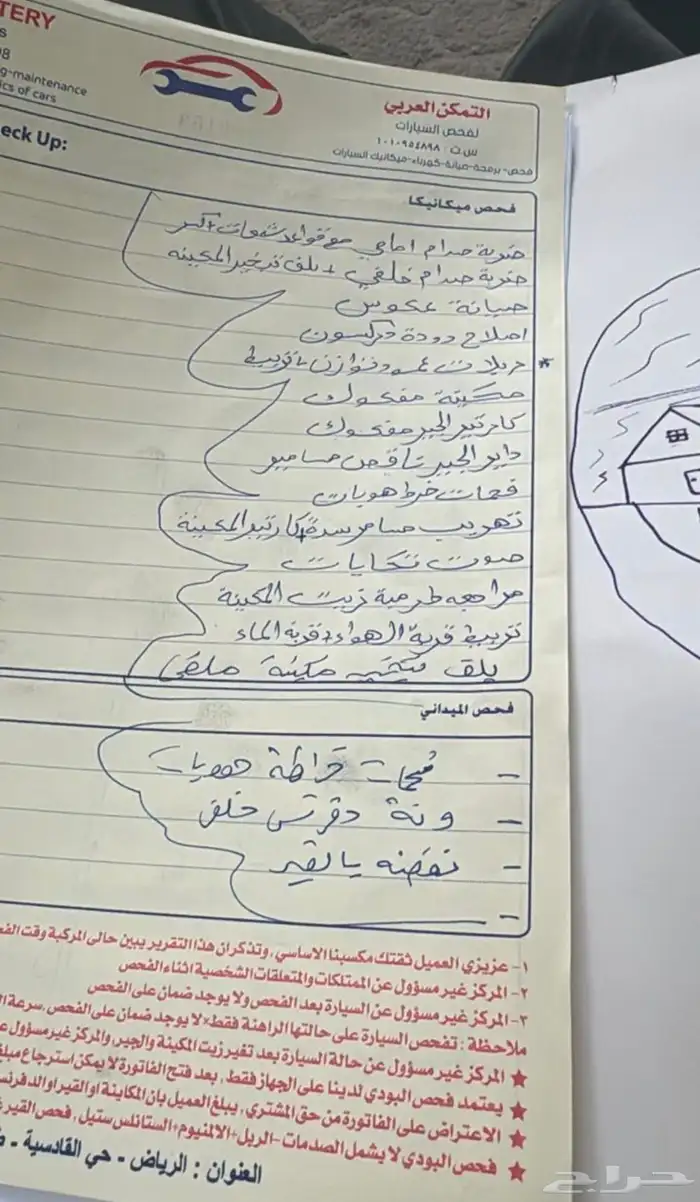 TERY
s
98
g-maintenance
ics of cars
eck Up:
التمكن العربي
لفحص السيارات
س.ت : ١٠١٠٩٥٤٨٩٨
فحص-برمجة-صيانة-كهرباء-ميكانيك السيارات
فحص ميكانيكا
ضربة صدام امامي مع قواعد شمعات اكسر
ضربة صدام خلفي + بلف تبخير المكينه
صيانة عكوس
اصلاح دودة دركسون
* ربلات عمود توازن + تربيط
مكينة مفكوك
كارتير الجير مفكوك
داير الجير ناقص مسامير
فحمات خرط هوبات
تهريب صامولة كارتير المكينة
صوت تكايات
مراجعه طرمبة زيت المكينة
تربيط قربة الهواء + قربة الماء
بلف مكينة ملغي
فحص الميداني
- فحمات خراطة هوبات
- ونة دفرنس خلفي
- نفضه بالقير
-
١- عزيزي العميل ثقتك مكسبنا الاساسي , وتذكر ان هذا التقرير يبين حالى المركبة وقت الفح
٢- المركز غير مسؤول عن الممتلكات والمتعلقات الشخصية اثناء الفحص
٣- المركز غير مسؤول عن السيارة بعد الفحص ولا يوجد ضمان على الفحص
ملاحظة : تفحص السيارة على حالتها الراهنة فقط × لا يوجد ضمان على الفحص , سرعة ال
★ المركز غير مسؤول عن حالة السيارة بعد تغير زيت المكينة والجير, والمركز غير مسؤول ع
★ يعتمد فحص البودي لدينا على الجهاز فقط , بعد فتح الفاتورة لا يمكن استرجاع مبلغ
★ الاعتراض على الفاتورة من حق المشتري , يبلغ العميل بان المكاينة او القير او الدفرنس
★ فحص البودي لا يشمل الصدمات - الربل + الالمنيوم + الستانلس ستيل , فحص القير
العنوان : الرياض - حي القادسية -
حراج